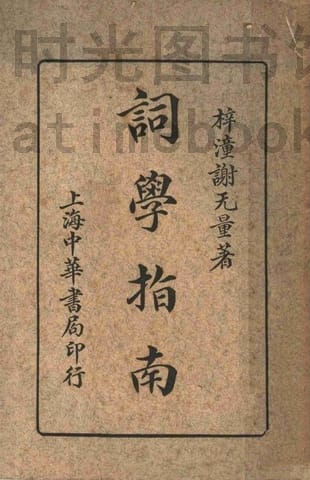 时光图书馆
atimebook
梓潼謝无量著
詞學指南
上海中華書局印行